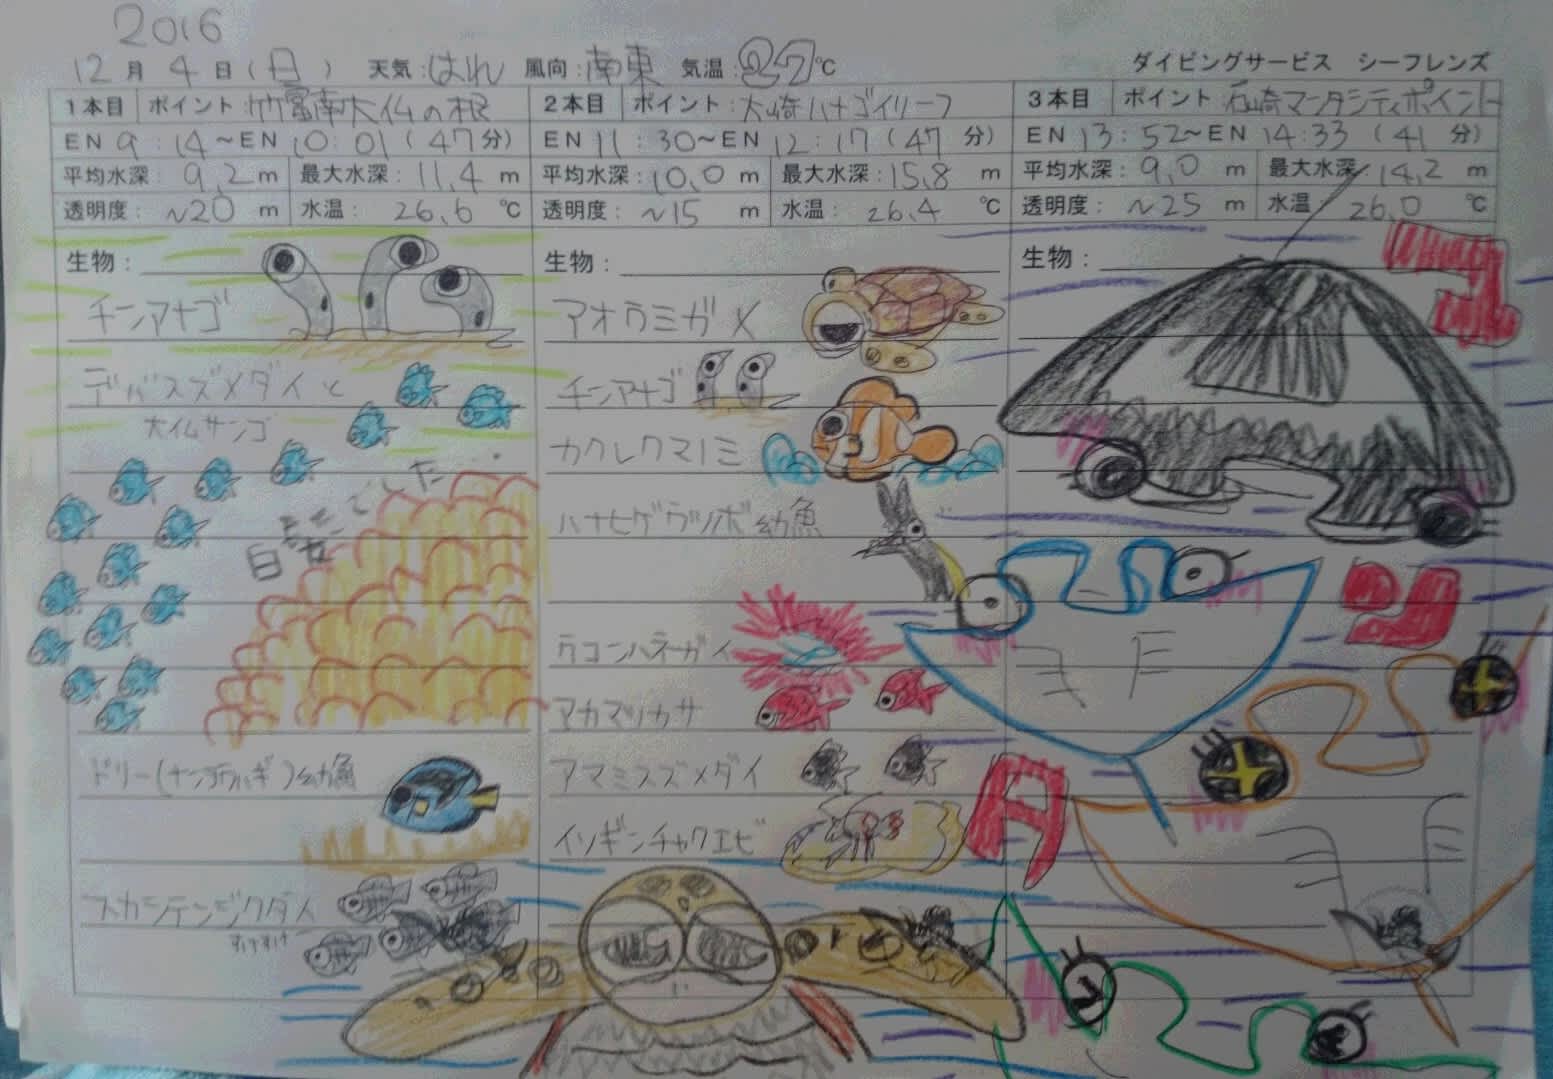 2016
12月4日(日) 天気:はれ 風向:南東 気温:27℃ ダイビングサービス シーフレンズ
1本目 ポイント:竹富南大仏の根
EN 9:14~EN 10:01 (47分)
平均水深:9.2m 最大水深:11.4m
透明度:~20m 水温:26.6℃
生物:
チンアナゴ
デバスズメダイと
大仏サンゴ
白芸でした…
ドリー(ナンヨウハギ)幼魚
スカシテンジクダイ
すけすけ
2本目 ポイント:大崎ハナゴイリーフ
EN 11:30~EN 12:17 (47分)
平均水深:10.0m 最大水深:15.8m
透明度:~15m 水温:26.4℃
生物:
アオウミガメ
チンアナゴ
カクレクマノミ
ハナヒゲウツボ幼魚
ウコンハネガイ
アカマツカサ
アマミスズメダイ
イソギンチャクエビ
3本目 ポイント:石崎マンタシティポイント
EN 13:52~EN 14:33 (41分)
平均水深:9.0m 最大水深:14.2m
透明度:~25m 水温:26.0℃
生物: